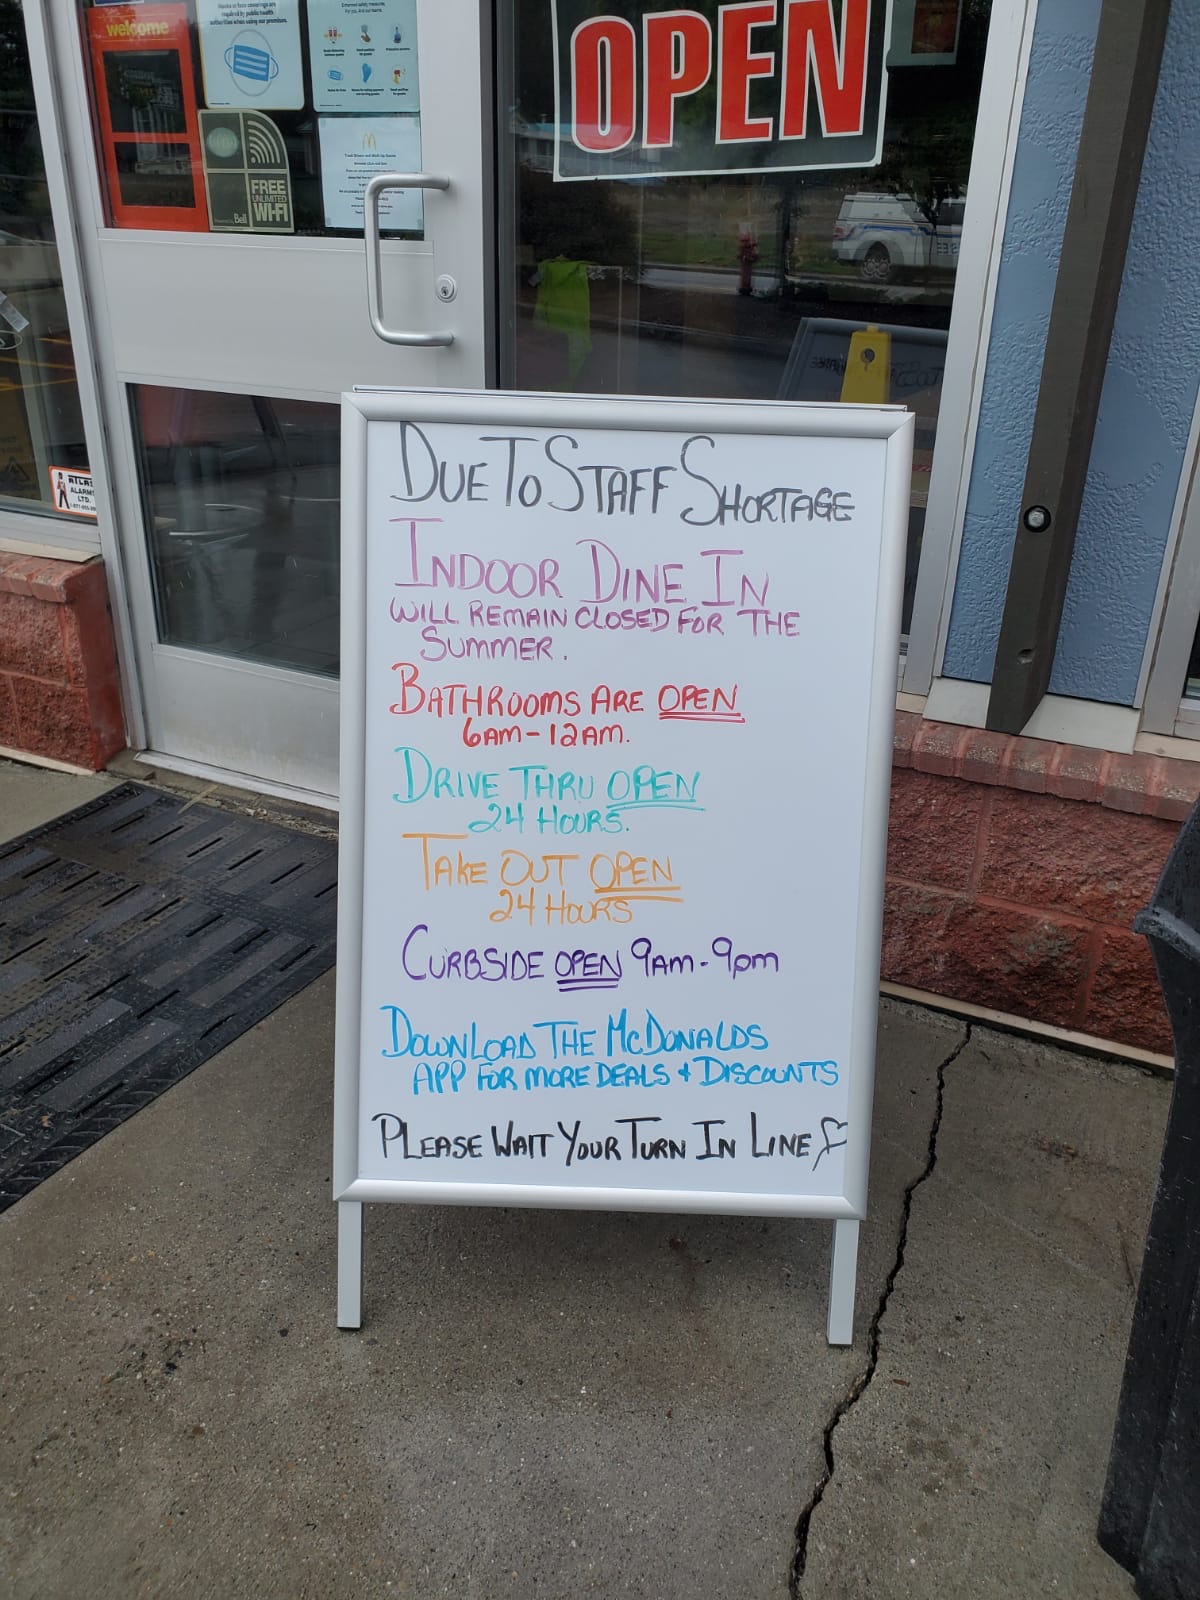 welcome
Masks or face coverings are
required by public health
authorities when using our premises.
OPEN
FREE
UNLIMITED
WI-FI
Bell
ATLAS
ALARMS
LTD.
DUE TO STAFF SHORTAGE
INDOOR DINE IN
WILL REMAIN CLOSED FOR THE
SUMMER.
BATHROOMS ARE OPEN
6AM-12AM.
DRIVE THRU OPEN
24 HOURS.
TAKE OUT OPEN
24 HOURS
CURBSIDE OPEN 9AM-9pm
DOWNLOAD THE McDONALDS
APP FOR MORE DEALS + DISCOUNTS
PLEASE WAIT YOUR TURN IN LINE